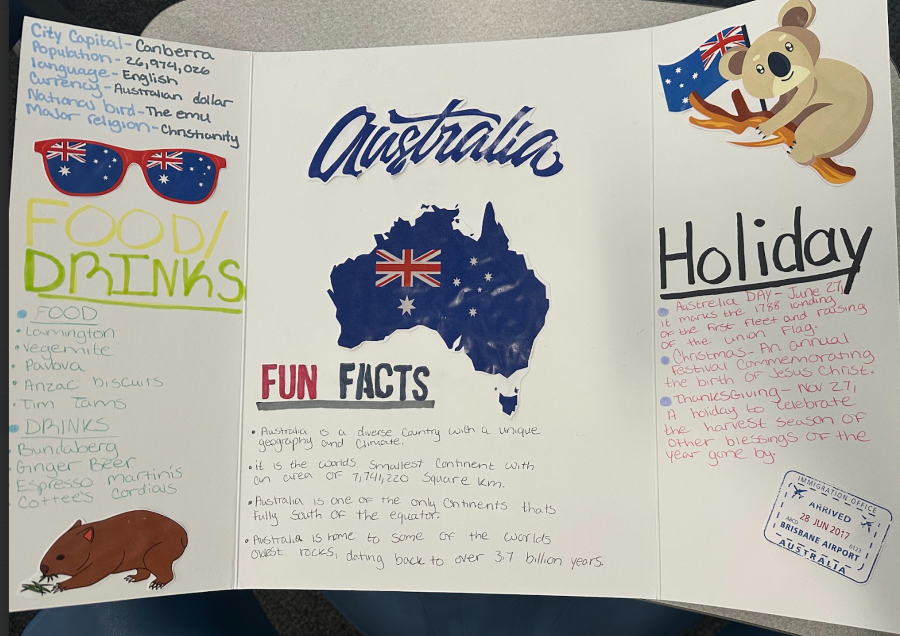 City Capital- Canberra
Population- 26,974,026
language- English
Currency- Australian dollar
National bird- The emu
Major religion- Christianity
FOOD/
DRINKS
• FOOD
• Lamington
• Vegemite
• Pavlova
• Anzac biscuits
• Tim Tams
• DRINKS
Bundaberg
Ginger Beer
Espresso Martinis
Cottee's Cordials
Australia
FUN FACTS
• Australia is a diverse Country with a unique
geography and Climate.
• it is the worlds smallest Continent with
an area of 7,741,220 square km.
• Australia is one of the only Continents thats
fully south of the equator.
• Australia is home to some of the worlds
oldest rocks, dating back to over 3.7 billion years.
Holiday
• Australia DAY- June 27,
it marks the 1788 landing
of the first fleet and raising
of the union Flag.
• Christmas- An annual
Festival Commemorating
the birth of Jesus Christ.
• Thanksgiving- Nov 27,
A holiday to celebrate
the harvest season of
other blessings of the
year gone by.
IMMIGRATION OFFICE
ARRIVED
28 JUN 2017
BRISBANE AIRPORT
AUSTRALIA